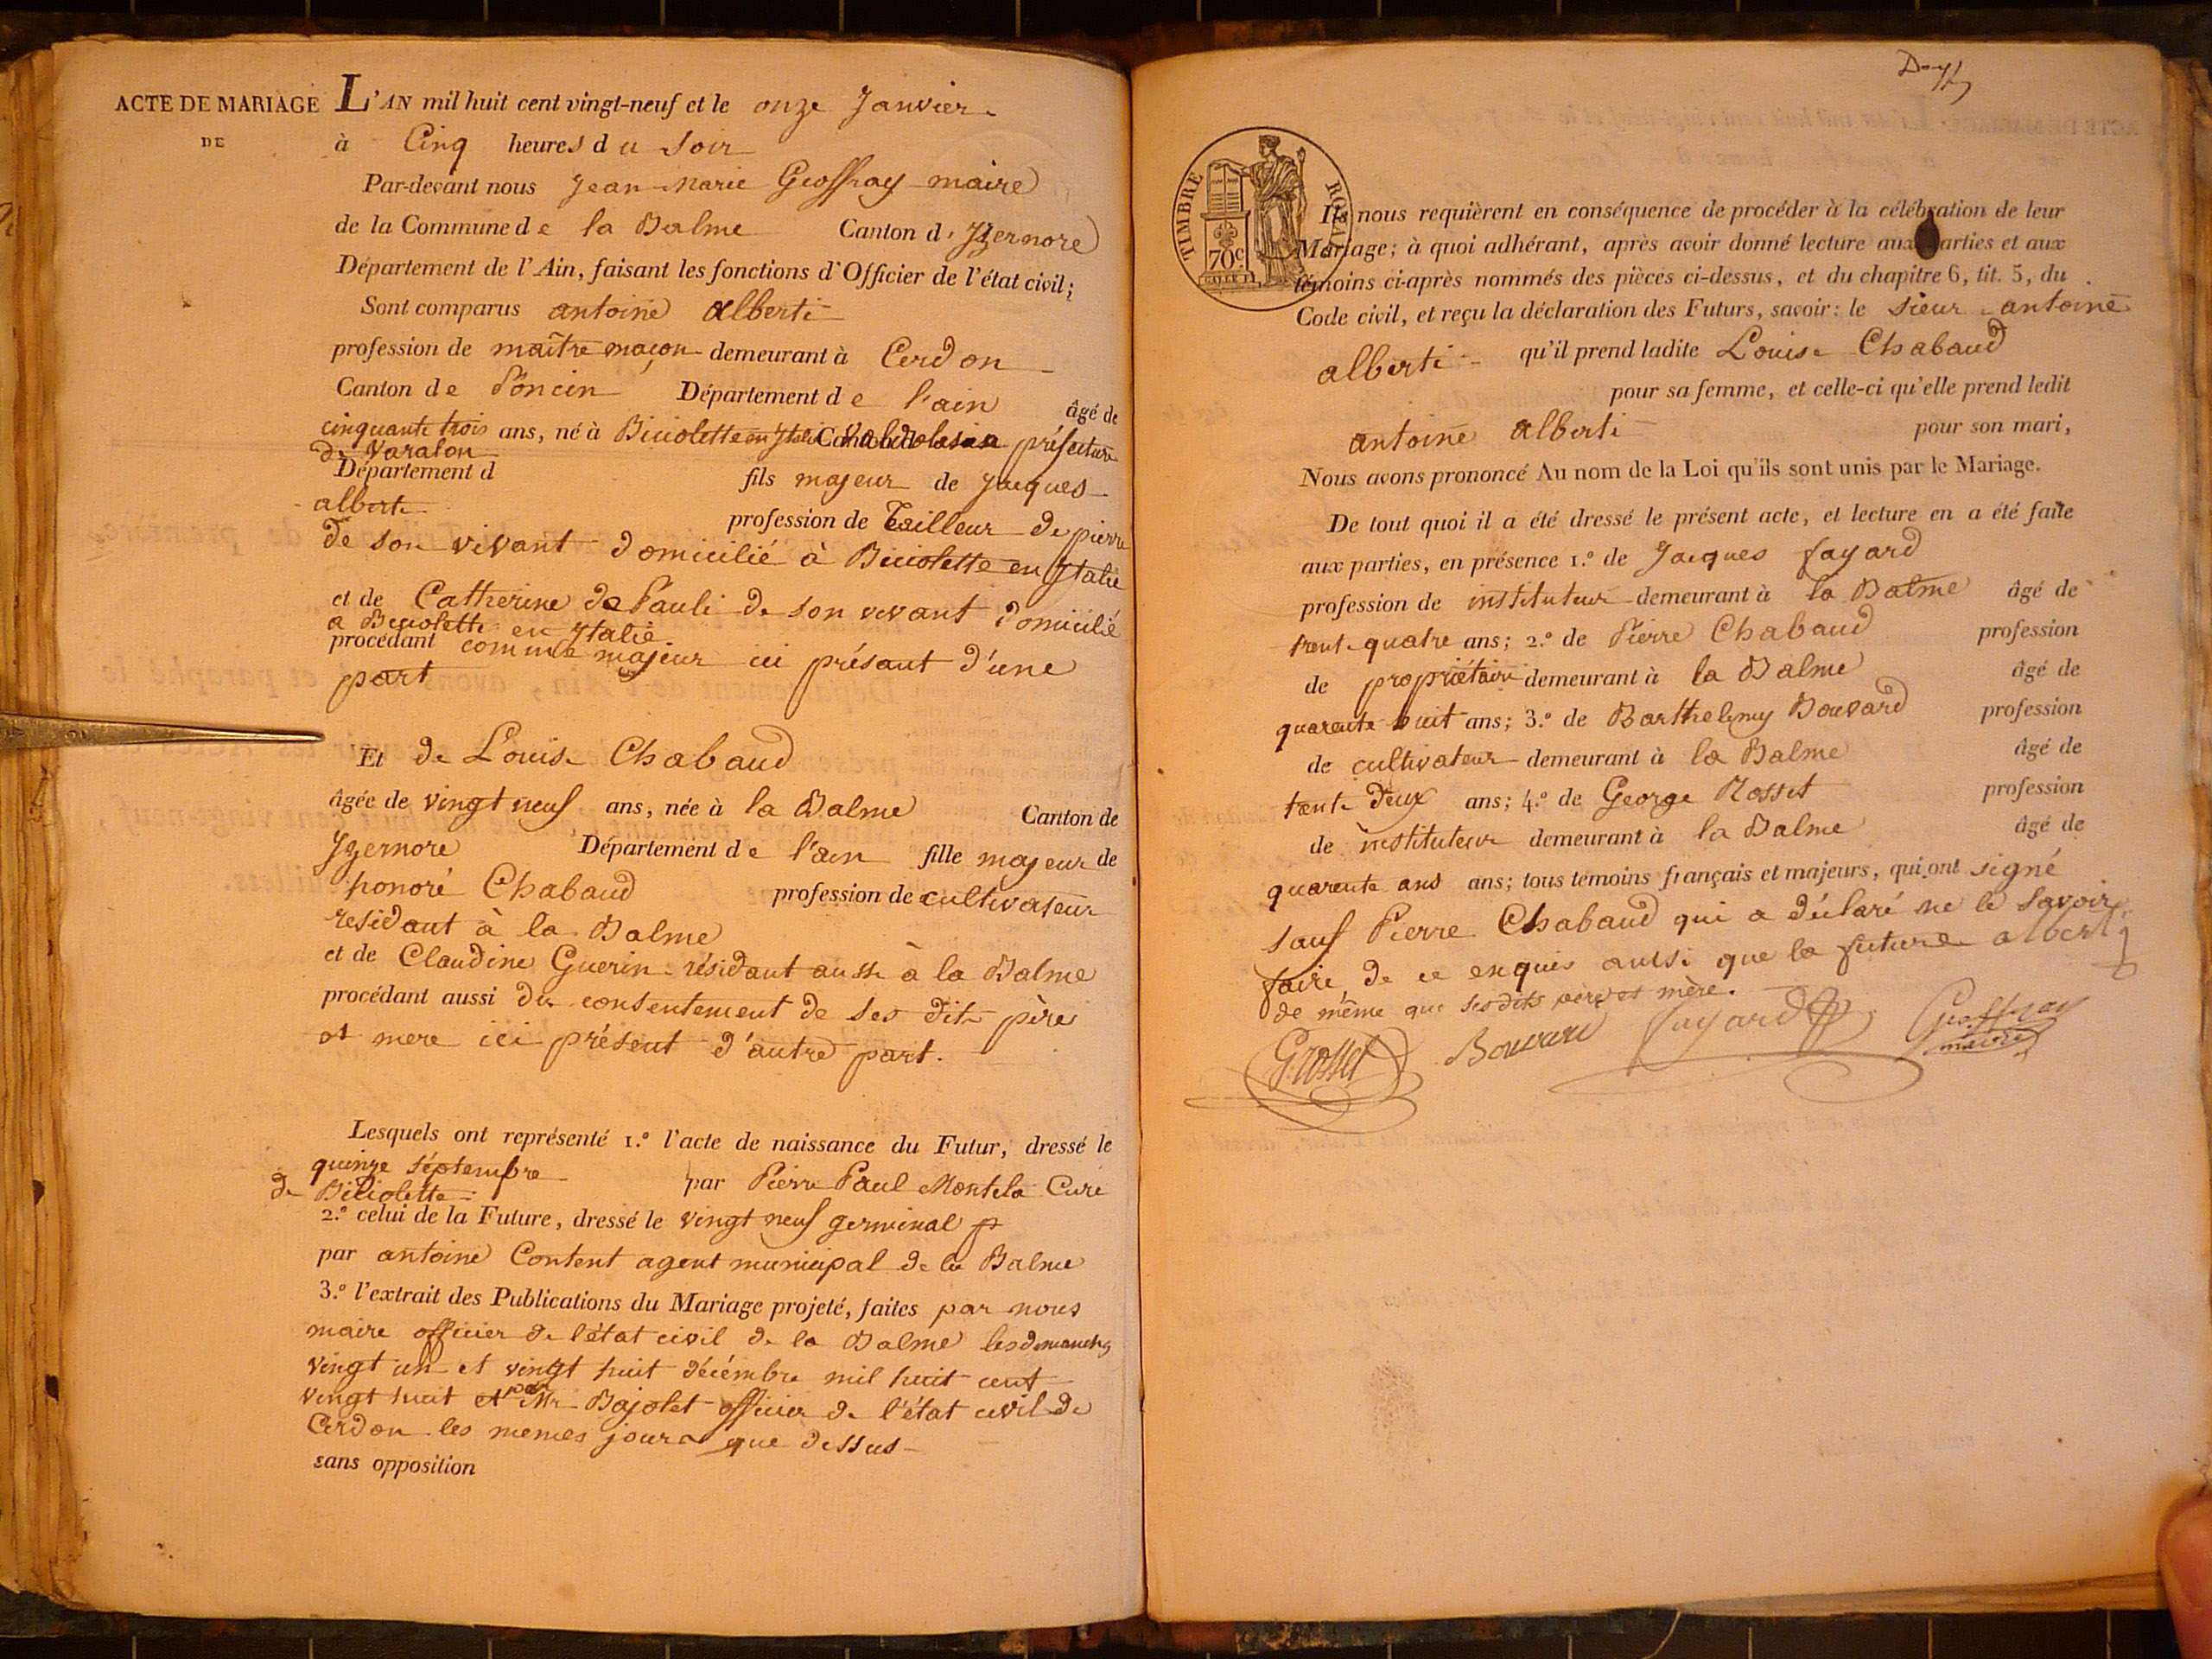 ACTE DE MARIAGE
DE
L'AN mil huit cent vingt-neuf et le onze Janvier
à Cinq heures du soir
Par-devant nous Jean-Marie Geoffray maire
de la Commune de la Balme Canton d'Izernore
Département de l'Ain, faisant les fonctions d'Officier de l'état civil;
Sont comparus antoine alberti
profession de maître maçon demeurant à Cerdon
Canton de Poncin Département de l'ain âgé de
cinquante trois ans, né à en Italie Canton préfecture
de Varalon
Département d fils majeur de Jacques
alberti profession de Tailleur de pierre
de son vivant domicilié à Biciolette en Italie
et de Catherine de Pauli de son vivant domicilié
a Biciolette en Italie
procédant comme majeur ici présant d'une
part
Et de Louise Chabaud
âgée de vingt neuf ans, née à la Balme Canton de
Izernore Département de l'ain fille majeur de
honoré Chabaud profession de cultivateur
residant à la Balme
et de Claudine Guerin résidant aussi à la Balme
procédant aussi du consentement de ses dits père
et mere ici présent d'autre part.
Lesquels ont représenté 1.º l'acte de naissance du Futur, dressé le
quinze séptembre par Pierre Paul Montela Curé
de Biciolette
2.º celui de la Future, dressé le vingt neuf germinal
par antoine Content agent municipal de la Balme
3.º l'extrait des Publications du Mariage projeté, faites par nous
maire officier de l'état civil de la Balme les dimanches
vingt un et vingt huit décémbre mil huit cent
vingt huit et par Mr Bajolet officier de l'état civil de
Cerdon les memes jours que dessus
sans opposition
TIMBRE ROYAL
70c
Ils nous requièrent en conséquence de procéder à la célébration de leur
Mariage; à quoi adhérant, après avoir donné lecture aux parties et aux
témoins ci-après nommés des pièces ci-dessus, et du chapitre 6, tit. 5, du
Code civil, et reçu la déclaration des Futurs, savoir: le sieur antoine
alberti qu'il prend ladite Louise Chabaud
pour sa femme, et celle-ci qu'elle prend ledit
antoine alberti pour son mari,
Nous avons prononcé Au nom de la Loi qu'ils sont unis par le Mariage.
De tout quoi il a été dressé le présent acte, et lecture en a été faite
aux parties, en présence 1.º de Jacques fayard
profession de instituteur demeurant à la Balme âgé de
trent-quatre ans; 2.º de Pierre Chabaud profession
de propriétaire demeurant à la Balme âgé de
quarente huit ans; 3.º de Barthelemy Bouvard profession
de cultivateur demeurant à la Balme âgé de
trente deux ans; 4.º de George Rosset profession
de instituteur demeurant à la Balme âgé de
quarente ans ans; tous témoins français et majeurs, qui ont signé
sauf Pierre Chabaud qui a déclaré ne le savoir
faire de ce enquis aussi que la future
de même que sesdits père et mère.
GRosset Bouvard fayard Geoffray
maire